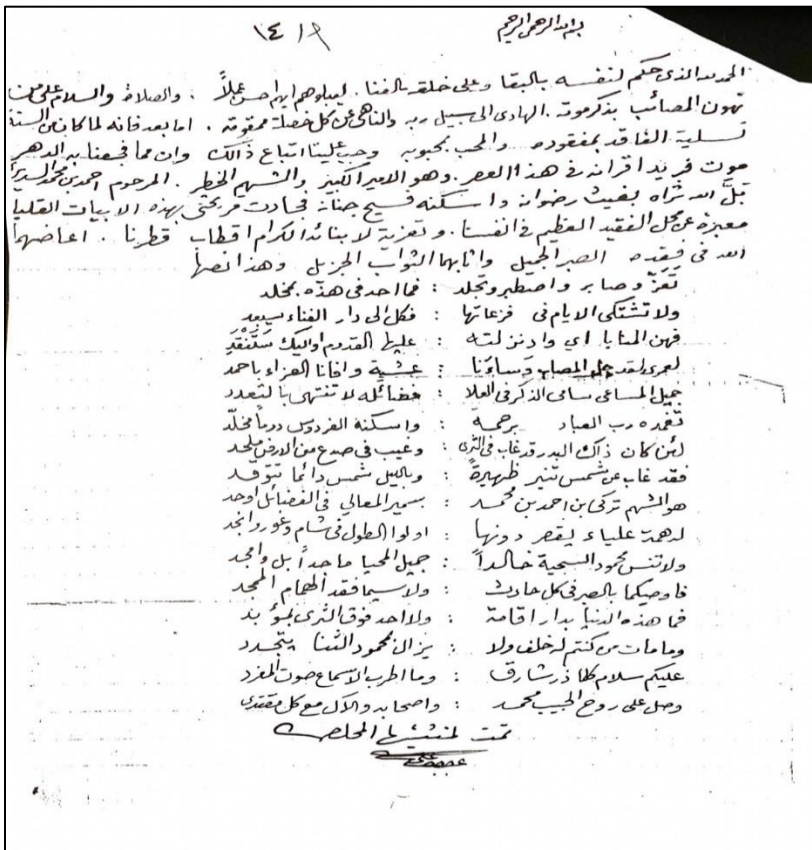 بسم الله الرحمن الرحيم
١٤/٩
الحمد لله الذي حكم لنفسه بالبقا وعلى خلقه بالفنا . ليبلوهم ايهم احسن عملاً . والصلاة والسلام على من
تهون المصائب بذكر موته . الهادي الى سبيل ربه والناهي عن كل خصلة ممقوته . اما بعد فانه لما كان من السنة
تسلية الفاقد بمفقوده والمحب بمحبوبه وجب علينا اتباع ذالك وان مما فجعنا به الدهر
موت فريد اقرانه في هذا العصر . وهو الامير الكبير والشهم الخطر . المرحوم احمد بن محمد السديري
بَلَّ الله ثراه بغيث رضوانه واسكنه فسيح جنانه فجادت قريحتي بهذه الابيات القليلة
معبرة عن محل الفقيد العظيم في انفسنا . وتعزية لابنائه الكرام اقطاب قطرنا . اعاضهما
الله في فقده الصبر الجميل واثابهما الثواب الجزيل وهذا نصها
تَعَزَّ وصابر واصطبر وتجلد : فما احد في هذه بمخلد
ولا تشتكي الايام في فزعاتها : فكل الى دار الفناء سيعد
فهن المنايا اي واد نزلته : عليها القدوم او اليك سَتَنْقَدِ
لعمري لقد جل المصاب وساءنا : عشية وافانا العزاء باحمد
جميل المساعي سامي الذكر في العلا : فضائله لا تنتهي بالتعدد
تغمده رب العباد برحمة : واسكنه الفردوس دوماً مخلّد
لئن كان ذاك البدر قد غاب في الثرى : وغيب في صدع من الارض ملحد
فقد غاب عن شمس تنير ظهيرةً : وبالليل شمس دائما تتوقد
هو الشهم تركي بن احمد بن محمد : سمير المعالي في الفضائل اوحد
له همة علياء يقصر دونها : اولوا الطول في شام وغور وانجد
ولا تنس محمود السجية خالداً : جميل المحيا ماجداً بل وامجد
فاوصيكما بالصبر في كل حادث : ولا سيما فقد الهمام الممجد
فما هذه الدنيا بدار اقامة : ولا احد فوق الثرى بمؤبد
وما مات من كنتم له خلف ولا : يزال محمود الثنا يتجدد
عليكم سلام كلما ذر شارق : وما اطرب الاسماع صوت المغرد
وصل على روح الحبيب محمد : واصحابه والآل مع كل مقتدي
تمت لمنشئها المخلص